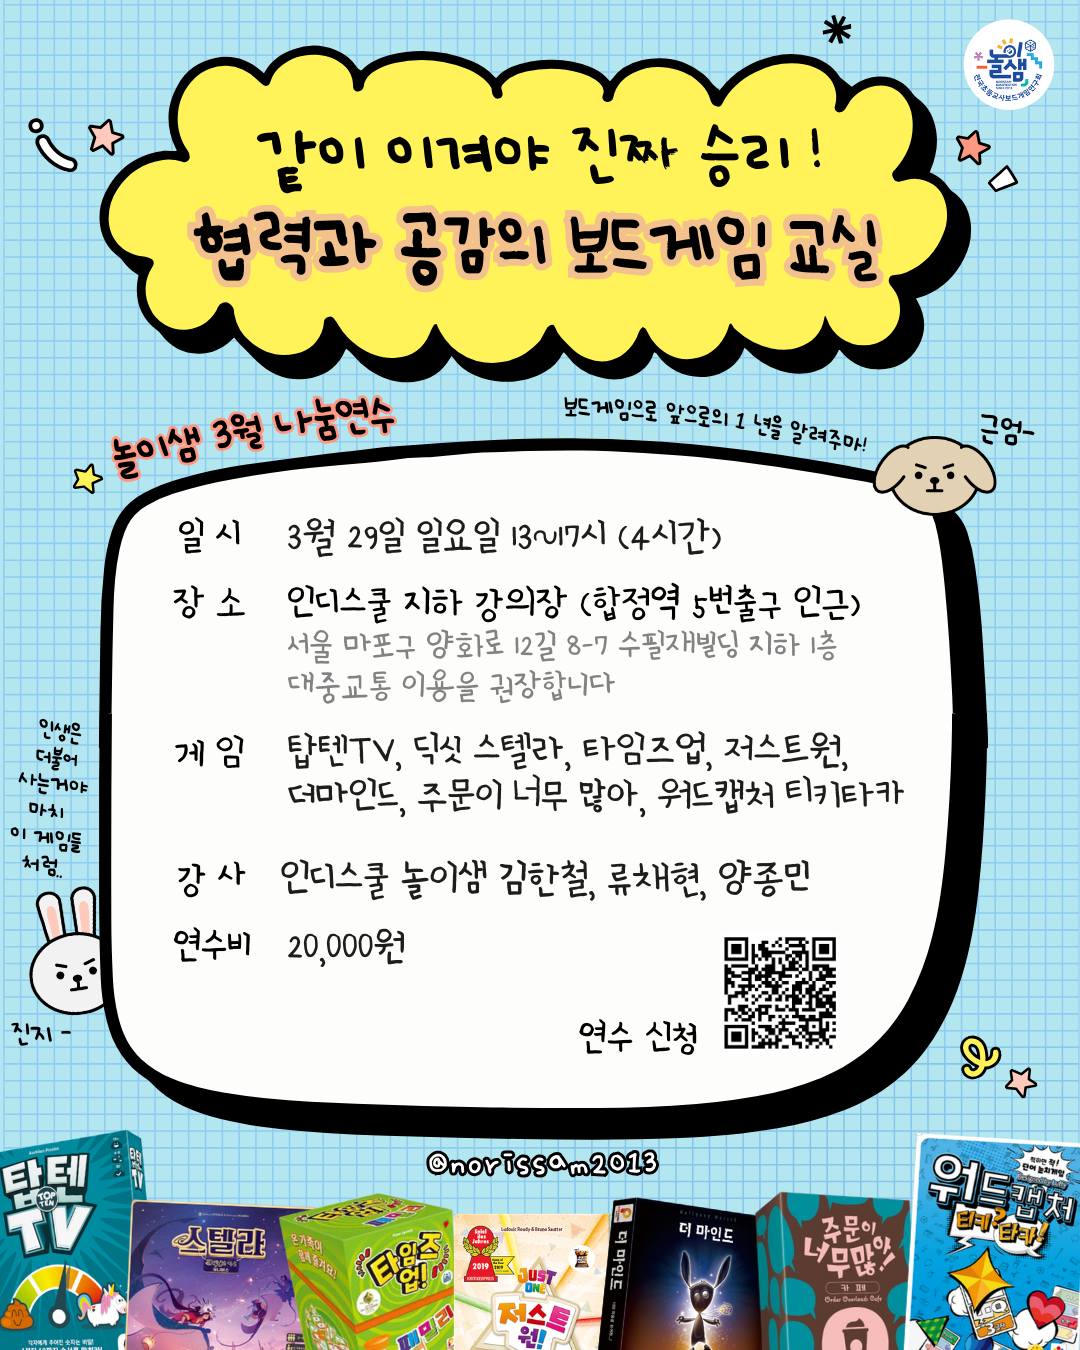 놀이샘
전국초등교사보드게임연구회
같이 이겨야 진짜 승리!
협력과 공감의 보드게임 교실
놀이샘 3월 나눔연수
보드게임으로 앞으로의 1년을 알려주마!
근엄-
일시 3월 29일 일요일 13~17시 (4시간)
장소 인디스쿨 지하 강의장 (합정역 5번출구 인근)
서울 마포구 양화로 12길 8-7 수필재빌딩 지하 1층
대중교통 이용을 권장합니다
게임 탑텐TV, 딕싯 스텔라, 타임즈업, 저스트원,
더마인드, 주문이 너무 많아, 워드캡처 티키타카
강사 인디스쿨 놀이샘 김한철, 류채현, 양종민
연수비 20,000원
연수 신청
인생은
더불어
사는거야
마치
이 게임들
처럼..
진지-
@norissam2013
탑텐
TOP TEN
TV
스텔라
온가족이
함께 즐겨요!
타임즈
업!
패밀리
Ludovic Roudy & Bruno Sautter
Spiel des Jahres
2019
JUST ONE
저스트
원!
더 마인드
Wolfgang Warsch
더 마인드
주문이
너무많아!
카페
Order Overload: Cafe
워드캡처
티키? 타카!